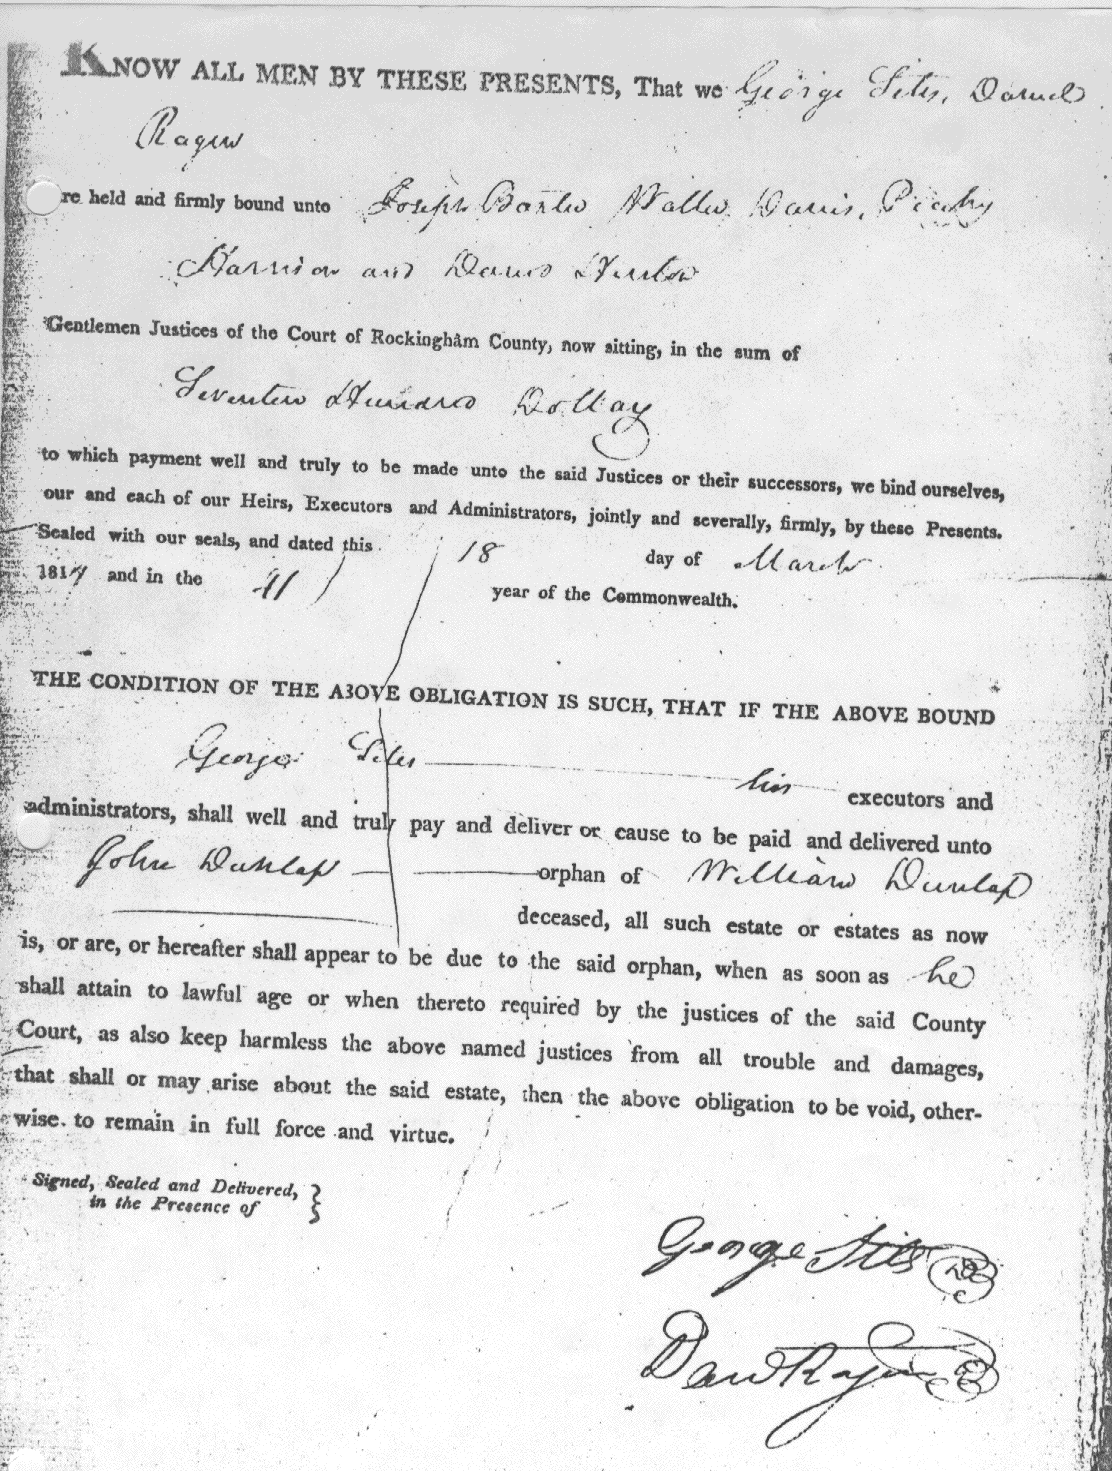 KNOW ALL MEN BY THESE PRESENTS, That we George Sites, Daniel
Ragen
re held and firmly bound unto Joseph Baxter Walter Davis, Peachy
Harrison and David Henton
Gentlemen Justices of the Court of Rockingham County, now sitting, in the sum of
Seventen Hundred Dollars
to which payment well and truly to be made unto the said Justices or their successors, we bind ourselves,
our and each of our Heirs, Executors and Administrators, jointly and severally, firmly, by these Presents.
Sealed with our seals, and dated this 18 day of March
1817 and in the 41 year of the Commonwealth.
THE CONDITION OF THE ABOVE OBLIGATION IS SUCH, THAT IF THE ABOVE BOUND
George Sites his executors and
administrators, shall well and truly pay and deliver or cause to be paid and delivered unto
John Dunlap orphan of William Dunlap
deceased, all such estate or estates as now
is, or are, or hereafter shall appear to be due to the said orphan, when as soon as he
shall attain to lawful age or when thereto required by the justices of the said County
Court, as also keep harmless the above named justices from all trouble and damages,
that shall or may arise about the said estate, then the above obligation to be void, other-
wise to remain in full force and virtue.
Signed, Sealed and Delivered,
in the Presence of
George Sites
Danl Ragen